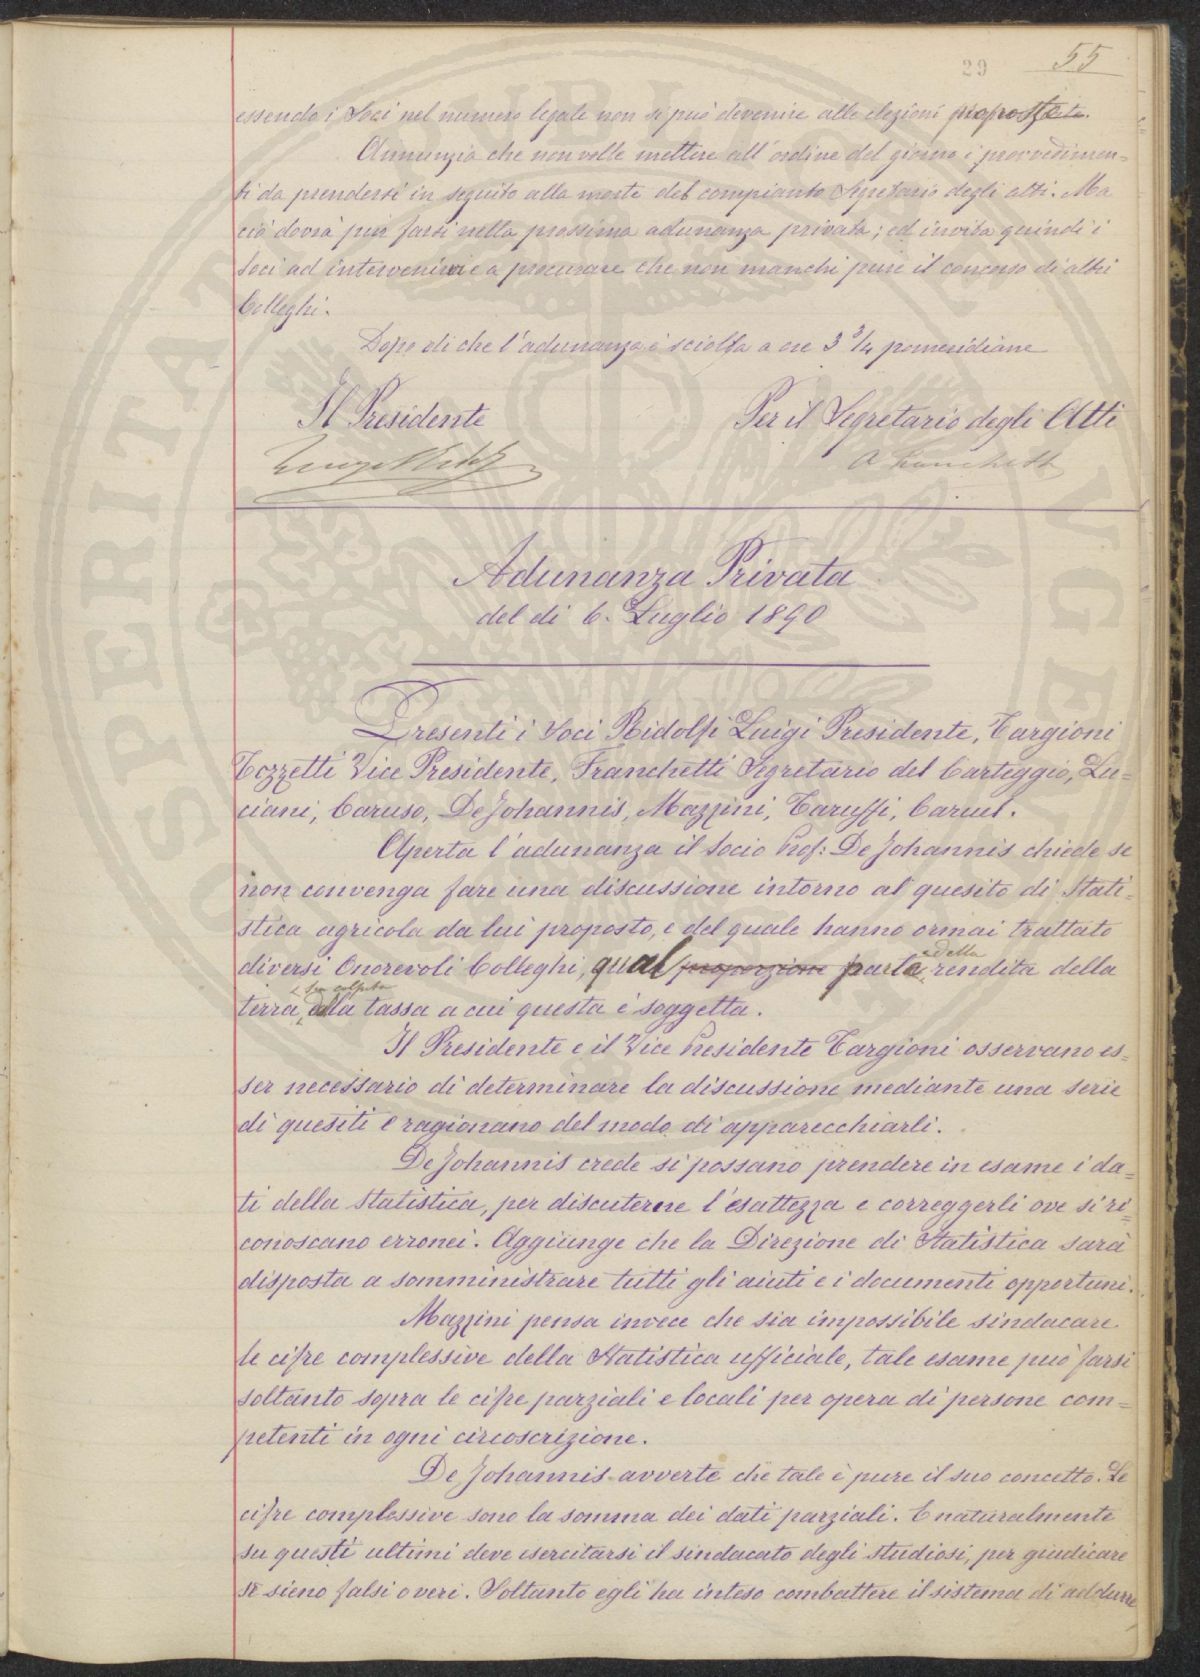 29 55
essendo i Soci nel numero legale non si può devenire alle elezioni proposte.
Annunzia che non volle mettere all'ordine del giorno i provvedimen=
ti da prendersi in seguito alla morte del compianto Segretario degli atti. Ma
ciò dovrà pur farsi nella prossima adunanza privata; ed invita quindi i
Soci ad intervenirvi e a procurare che non manchi pure il concorso di altri
Colleghi.
Dopo di che l'adunanza è sciolta a ore 3 3/4 pomeridiane
Il Presidente Per il Segretario degli Atti
Luigi Ridolfi A Franchetti
Adunanza Privata
del dì 6. Luglio 1890
Presenti i Soci Ridolfi Luigi Presidente, Targioni
Tozzetti Vice Presidente, Franchetti Segretario del Carteggio, Lu=
ciani, Caruso, De Johannis, Mazzini, Taruffi, Caruel.
Aperta l'adunanza il Socio Prof: De Johannis chiede se
non convenga fare una discussione intorno al quesito di Stati=
stica agricola da lui proposto, e del quale hanno ormai trattato
diversi Onorevoli Colleghi, qual proporzione parte della rendita della
terra, sia colpita dalla tassa a cui questa è soggetta.
Il Presidente e il Vice Presidente Targioni osservano es=
ser necessario di determinare la discussione mediante una serie
di quesiti e ragionano del modo di apparecchiarli.
De Johannis crede si possano prendere in esame i da=
ti della statistica, per discuterne l'esattezza e correggerli ove si ri=
conoscano erronei. Aggiunge che la Direzione di Statistica sarà
disposta a somministrare tutti gli aiuti e i documenti opportuni.
Mazzini pensa invece che sia impossibile sindacare
le cifre complessive della Statistica ufficiale, tale esame può farsi
soltanto sopra le cifre parziali e locali per opera di persone com=
petenti in ogni circoscrizione.
De Johannis avverte che tale è pure il suo concetto. Le
cifre complessive sono la somma dei dati parziali. E naturalmente
su questi ultimi deve esercitarsi il sindacato degli studiosi, per giudicare
se sieno falsi o veri. Soltanto egli ha inteso combattere il sistema di addurre